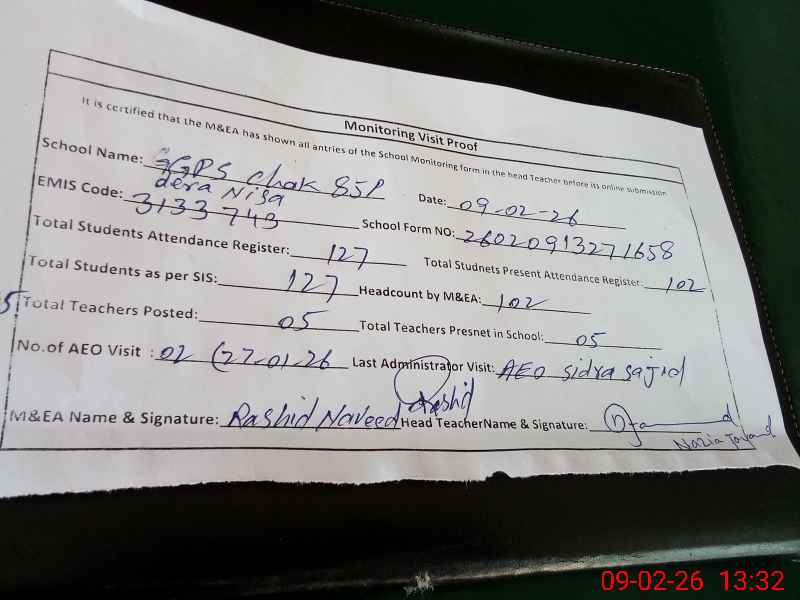 Monitoring Visit Proof
It is certified that the M&EA has shown all antries of the School Monitoring form in the head Teacher before its online submission
School Name: GGPS chak 85P Date: 09-02-26
dera Nisa
EMIS Code: 3133743 School Form NO: 26020913271658
Total Students Attendance Register: 127 Total Studnets Present Attendance Register: 102
Total Students as per SIS: 127 Headcount by M&EA: 102
5 Total Teachers Posted: 05 Total Teachers Presnet in School: 05
No.of AEO Visit : 02 (27-01-26 Last Administrator Visit: AEO sidra sajid
M&EA Name & Signature: Rashid Naveed Rashid Head TeacherName & Signature:
Nazia Javand
09-02-26 13:32